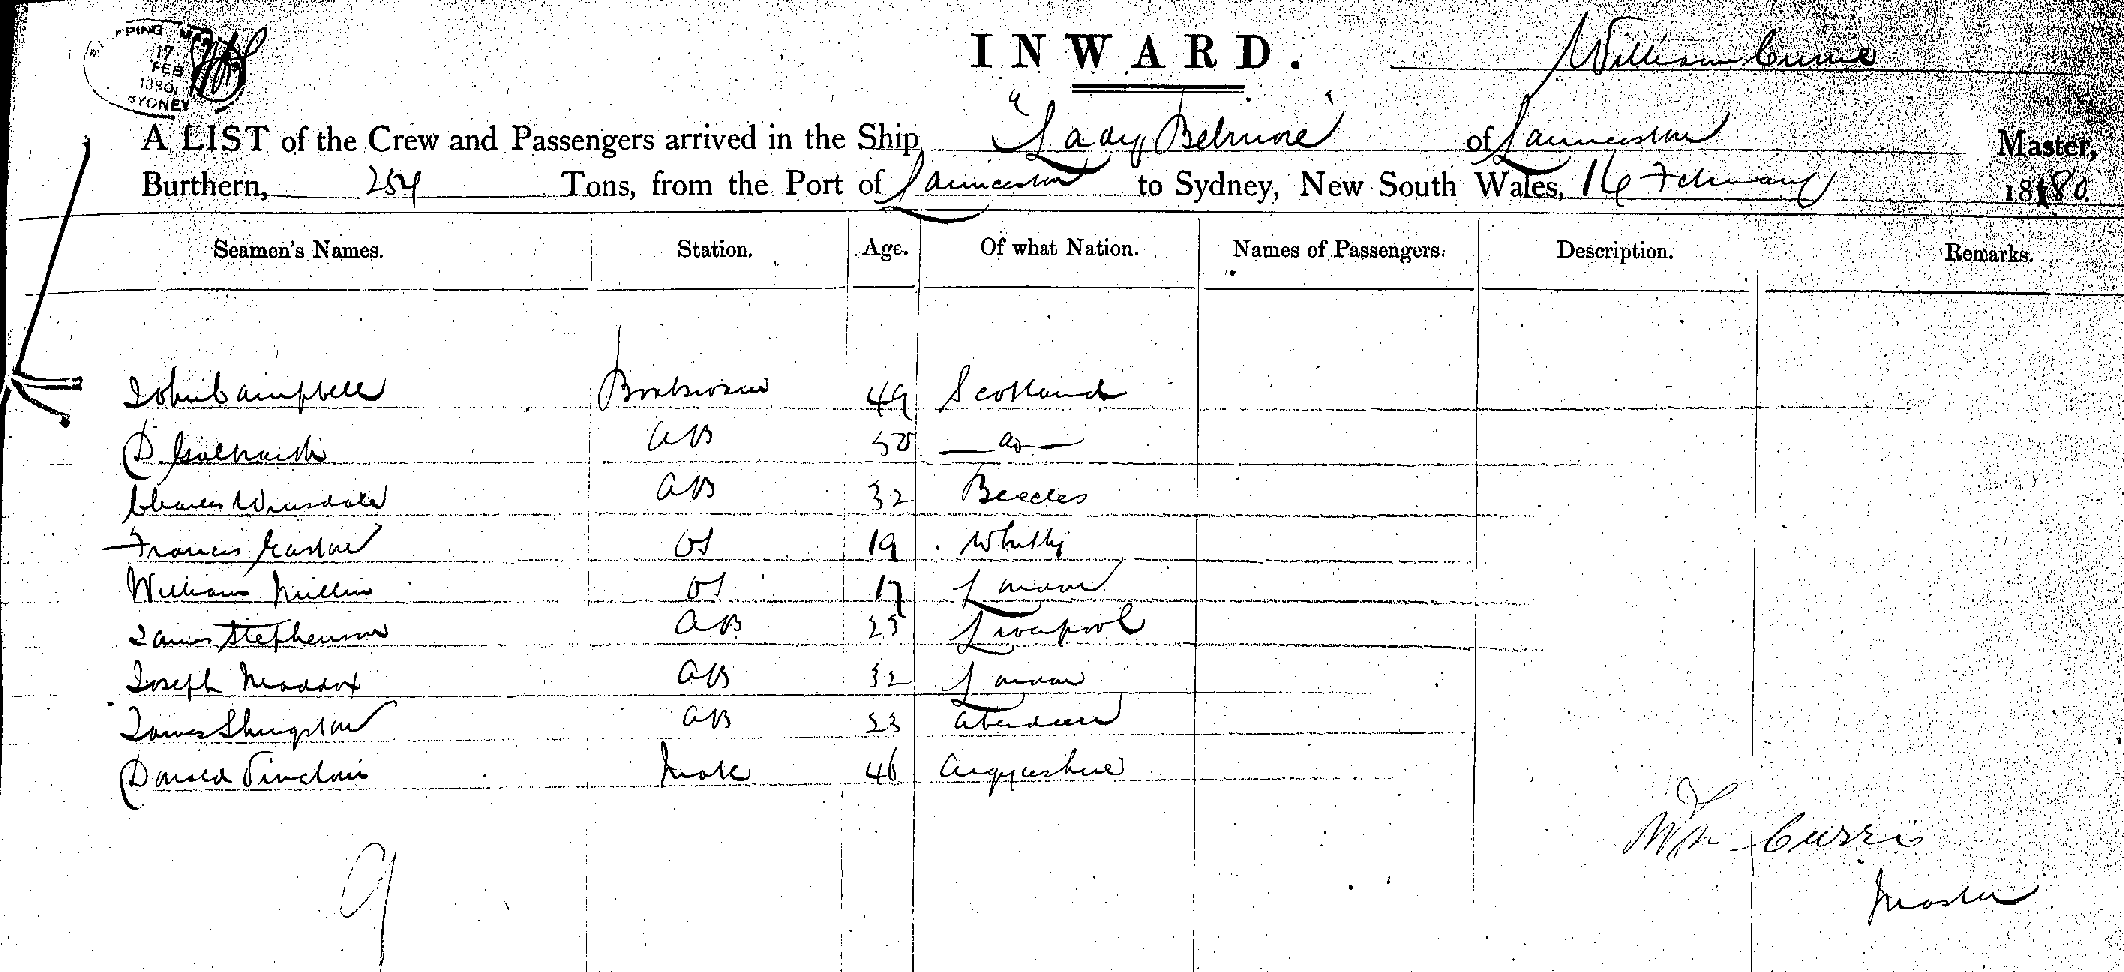 SHIPPING MASTER
17
FEB
1880
SYDNEY
INWARD.
William Currie
A LIST of the Crew and Passengers arrived in the Ship "Lady Belmore" of Launceston Master,
Burthern, 254 Tons, from the Port of Launceston to Sydney, New South Wales, 16 February 1880
Seamen's Names. Station. Age. Of what Nation. Names of Passengers. Description. Remarks.
John Campbell Boatswain 49 Scotland
D Galbraith AB 50 — do —
Charles AB 32 Beccles
Francis Easton OS 19 Whitby
William Millin OS 17 London
James Stephenson AB 25 Liverpool
Joseph Maddox AB 32 London
James AB 23 Aberdeen
Donald Sinclair Mate 46 Argyleshire
9
Wm Currie
Master